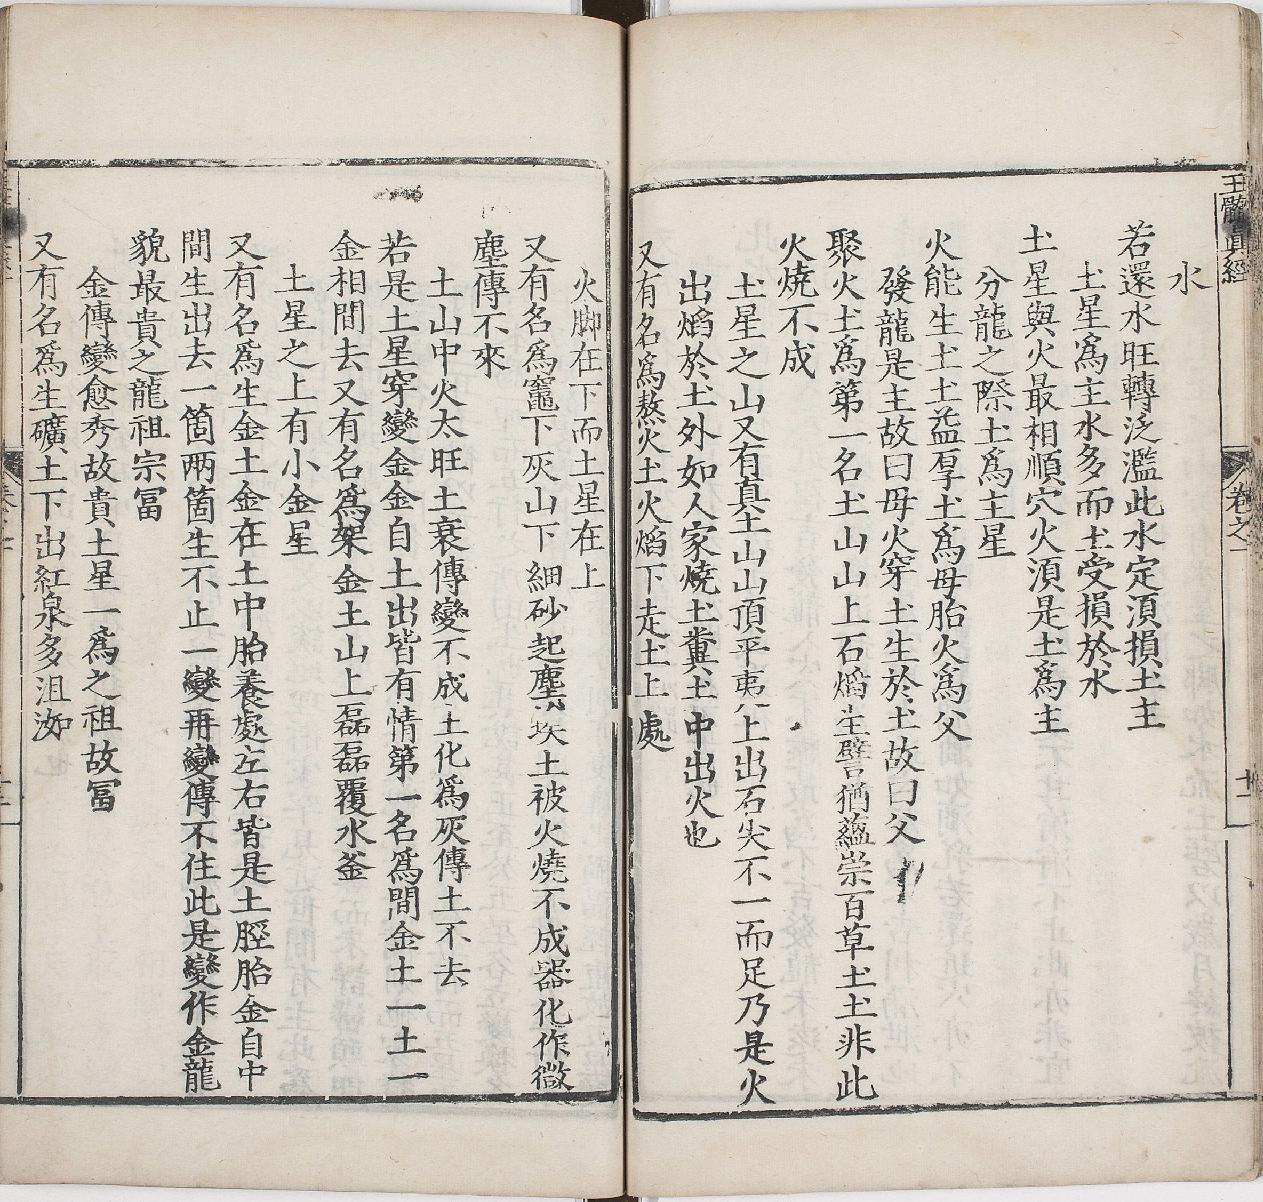 玉髓眞經
卷之一
十一
水
若還水旺轉泛濫此水定湏損土主
土星爲主水多而土受損於水
土星與火最相順穴火湏是土爲主
分龍之際土爲主星
火能生土土益厚土爲母胎火爲父
發龍是主故曰母火穿土生於土故曰父
聚火土爲第一名土山山上石熖生譬猶蘊崇百草土土非此
火燒不成
土星之山又有真土山山頂平夷上出石尖不一而足乃是火
出熖於土外如人家燒土糞土中出火也
又有名爲熬火土火熖下走土上處
火脚在下而土星在上
又有名爲竈下灰山下細砂起塵埃土被火燒不成器化作微
塵傳不來
土山中火太旺土衰傳變不成土化爲灰傳土不去
若是土星穿變金金自土出皆有情第一名爲間金土一土一
金相間去又有名爲架金土山上磊磊覆水釜
土星之上有小金星
又有名爲生金土金在土中胎養處左右皆是土脛胎金自中
間生出去一箇兩箇生不止一變再變傳不住此是變作金龍
貌最貴之龍祖宗冨
金傳變愈秀故貴土星一爲之祖故冨
又有名爲生礦土下出紅泉多沮洳